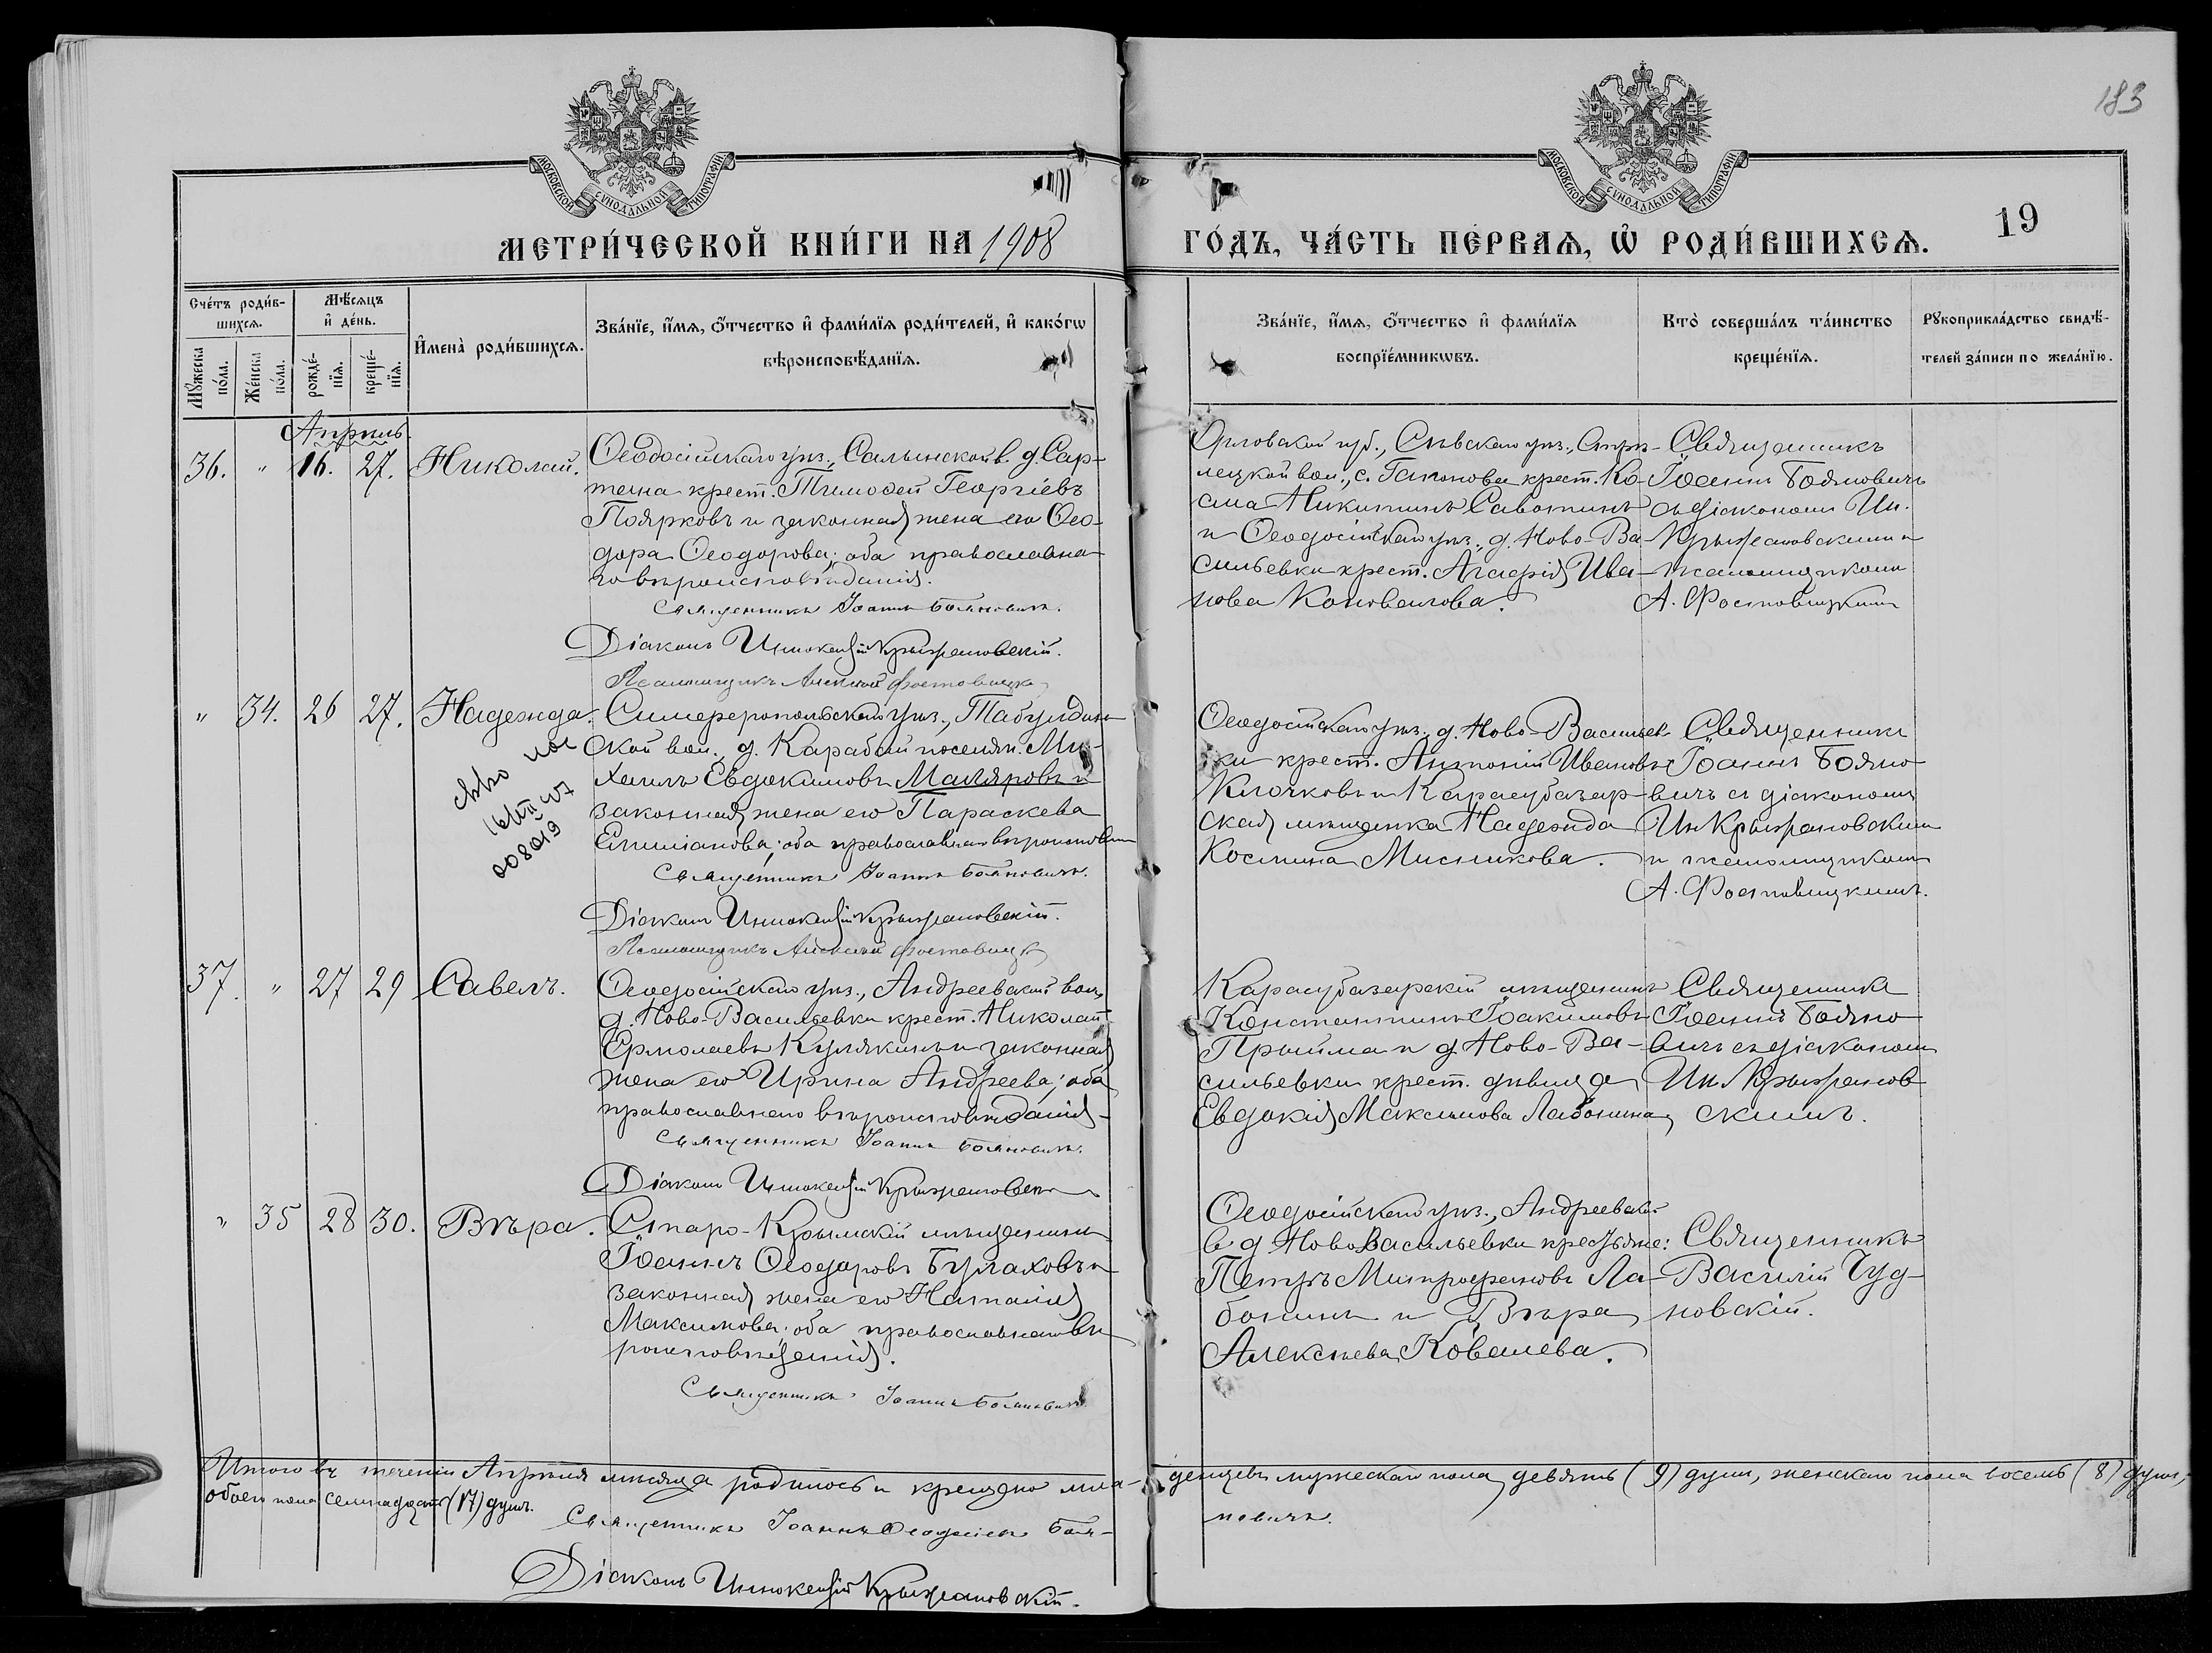 183
МОСКОВСКОЙ СУНОДАЛЬНОЙ ТИПОГРАФІИ
МОСКОВСКОЙ СУНОДАЛЬНОЙ ТИПОГРАФІИ
МЕТРИ́ЧЕСКОЙ КНИ́ГИ НА 1908
ГО́ДЪ, ЧА́СТЬ ПЕ́РВАѦ, Ѽ РОДИ́ВШИХСѦ.
19
Сче́тъ роди́в-
шихсѧ.
Мꙋ́жеска по́ла.
Же́нска по́ла.
Мѣ́сѧцъ
и҆ де́нь.
рожде́-
нїѧ.
креще́-
нїѧ.
И҆мена̀ роди́вшихсѧ.
Зва́нїе, и҆́мѧ, ѻ҆́тчество и҆ фами́лїѧ роди́телей, и҆ како́гѡ
вѣроисповѣ́данїѧ.
Зва́нїе, и҆́мѧ, ѻ҆́тчество и҆ фами́лїѧ
воспрїе́мникѡвъ.
Кто̀ соверша́лъ та́инство
креще́нїѧ.
Рꙋкоприкла́дство свидѣ́-
телей за́писи по жела́нїю.
Апрѣль.
36. " 16. 27. Николай.
Ѳеодосійскаго уѣз., Салынской в. д. Сар-
тана крест. Тимоѳей Георгіевъ
Поярковъ и законная жена его Ѳео-
дора Ѳеодорова; оба православна-
го вѣроисповѣданія.
Священникъ Іоаннъ Бояновичъ.
Діаконъ Иннокентій Крыжановскій.
Псаломщикъ Алексѣй Фостовицкій
Орловской губ., Сѣвскаго уѣз., Стрѣ-
лецкой вол., с. Гапонова крест. Ко-
сма Никитинъ Савоткинъ
и Ѳеодосійскаго уѣз., д. Ново-Ва-
сильевки крест. Агафія Ива-
нова Коновалова.
Священникъ
Іоаннъ Бояновичъ
съ діакономъ Ин.
Крыжановскимъ и
псаломщикомъ
А. Фостовицкимъ
" 34. 26 27. Надежда.
Симферопольскаго уѣз., Табулдин-
ской вол., д. Карабай поселян. Ми-
хаилъ Евдокимовъ Маляровъ и
законная жена его Параскева
Емиліанова; оба православнаго вѣроисповѣд
Священникъ Іоаннъ Бояновичъ.
Діаконъ Иннокентій Крыжановскій.
Псаломщикъ Алексѣй Фостовицкій
008019
Ѳеодосійскаго уѣз. д. Ново-Васильев-
ки крест. Антоній Ивановъ
Клочковъ и Карасубазар-
ская мѣщанка Надежда
Космина Мисникова.
Священникъ
Іоаннъ Бояно-
вичъ съ діакономъ
Ин. Крыжановскимъ
и псаломщикомъ
А. Фостовицкимъ.
37. " 27 29 Савелъ.
Ѳеодосійскаго уѣз., Андреевской вол.,
д. Ново-Васильевки крест. Николай
Ермолаевъ Кулякинъ и законная
жена его Ирина Андреева; оба
православнаго вѣроисповѣданія.
Священникъ Іоаннъ Бояновичъ.
Діаконъ Иннокентій Крыжановскій
Карасубазарскій мѣщанинъ
Константинъ Іоакимовъ
Прыйма и д. Ново-Ва-
сильевки крест. дѣвица
Евдокія Максимова Лабонина
Священникъ
Іоаннъ Бояно-
вичъ съ діакономъ
Ин. Крыжанов-
скимъ.
" 35 28 30. Вѣра.
Старо-Крымскій мѣщанинъ
Іоаннъ Ѳеодоровъ Булаховъ и
законная жена его Наталія
Максимова; оба православнаго вѣ-
роисповѣданія.
Священникъ Іоаннъ Бояновичъ
Ѳеодосійскаго уѣз., Андреевской
в. д. Ново-Васильевки крестьяне:
Петръ Митрофановъ Ла-
бонинъ и Вѣра
Алексѣева Ковалева.
Священникъ
Василій Чуд-
новскій.
Итого въ теченіи Апрѣля мѣсяца родилось и крещено мла-
денцевъ мужескаго пола девять (9) душъ, женскаго пола восемь (8) душъ,
обоего пола семнадцать (17) душъ.
Священникъ Іоаннъ Ѳеодосіевъ Боя-
новичъ.
Діаконъ Иннокентій Крыжановскій.